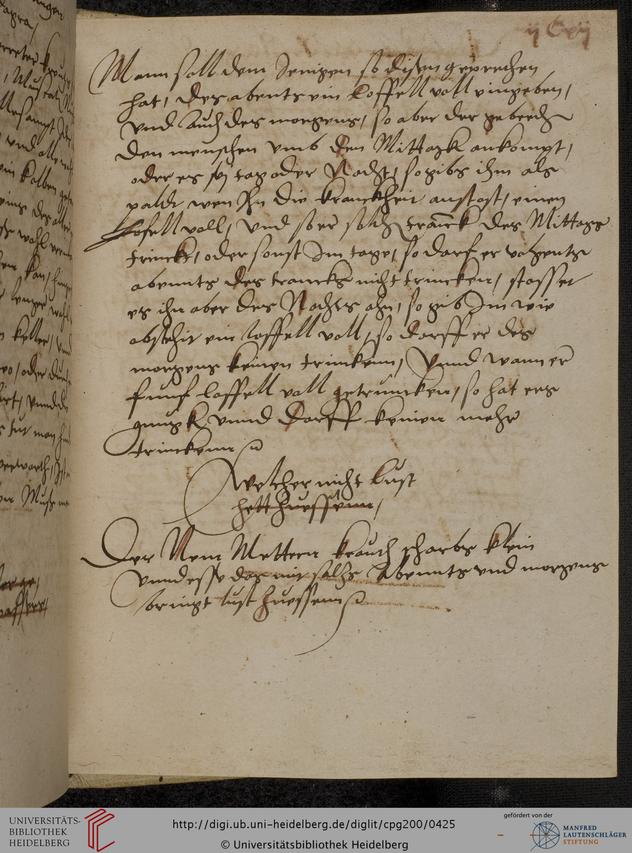 Mann soll dem Jenigen so disen geprechen
hat, des abents ein Loffell voll eingeben,
vnd auch des morgens, so aber der gebrech
den menschen vmb den Mittagk ankompt,
oder es sej tag oder Nacht, so gibs ihm als
paldt wen Jn die kranckheit anstost, einen
Loffell voll, vnd so er solch tranck des Mittags
trinckt, oder sonst Im tage, so darf er
abennts des trancks nicht trincken, stosset
es ihn aber des Nachts ahn, so gib Im wie
ein loffell voll, so dorff er des
morgens keinen trincken, Vnnd wann er
funf loffell voll getruncken, so hat ers
gnugk vnnd dorff keinen mehr
trinckenn
Welcher nicht Lust
hett zu essenn,
Der Nem Mettern krautt scharbs klein
vnnd esse das mit saltz Abennts vnd morgens
bringt lust zu essenn
UNIVERSITÄTS-
BIBLIOTHEK
HEIDELBERG
http://digi.ub.uni-heidelberg.de/diglit/cpg200/0425
© Universitätsbibliothek Heidelberg
gefördert von der
MANFRED
LAUTENSCHLÄGER
STIFTUNG